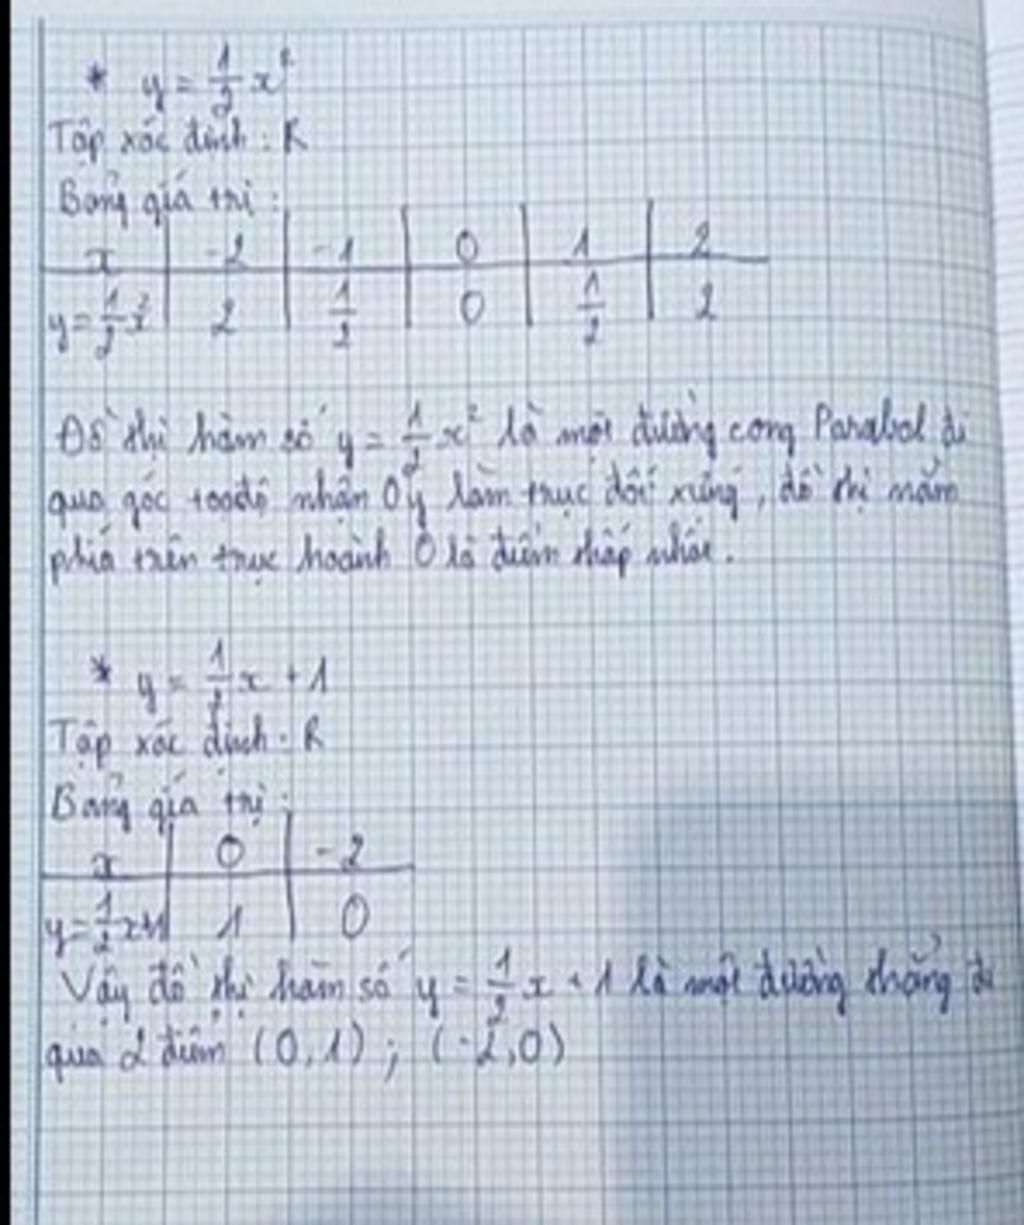 * y = 1/2 x²
Tập xác định : R
Bảng giá trị :
x | -2 | -1 | 0 | 1 | 2
y = 1/2 x² | 2 | 1/2 | 0 | 1/2 | 2
Đồ thị hàm số y = 1/2 x² là một đường cong Parabol đi
qua gốc toạ độ nhận Oy làm trục đối xứng, đồ thị nằm
phía trên trục hoành O là điểm thấp nhất.
* y = 1/2 x + 1
Tập xác định : R
Bảng giá trị :
x | 0 | -2
y = 1/2 x + 1 | 1 | 0
Vậy đồ thị hàm số y = 1/2 x + 1 là một đường thẳng đi
qua 2 điểm (0,1) ; (-2,0)